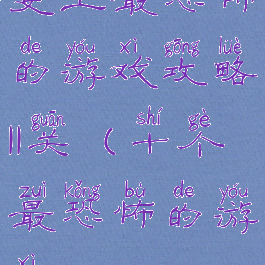 de yóu xì gōng lüè
的游戏攻略
guān shí gè
||关（十个
zuì kǒng bù de yóu
最恐怖的游
xì